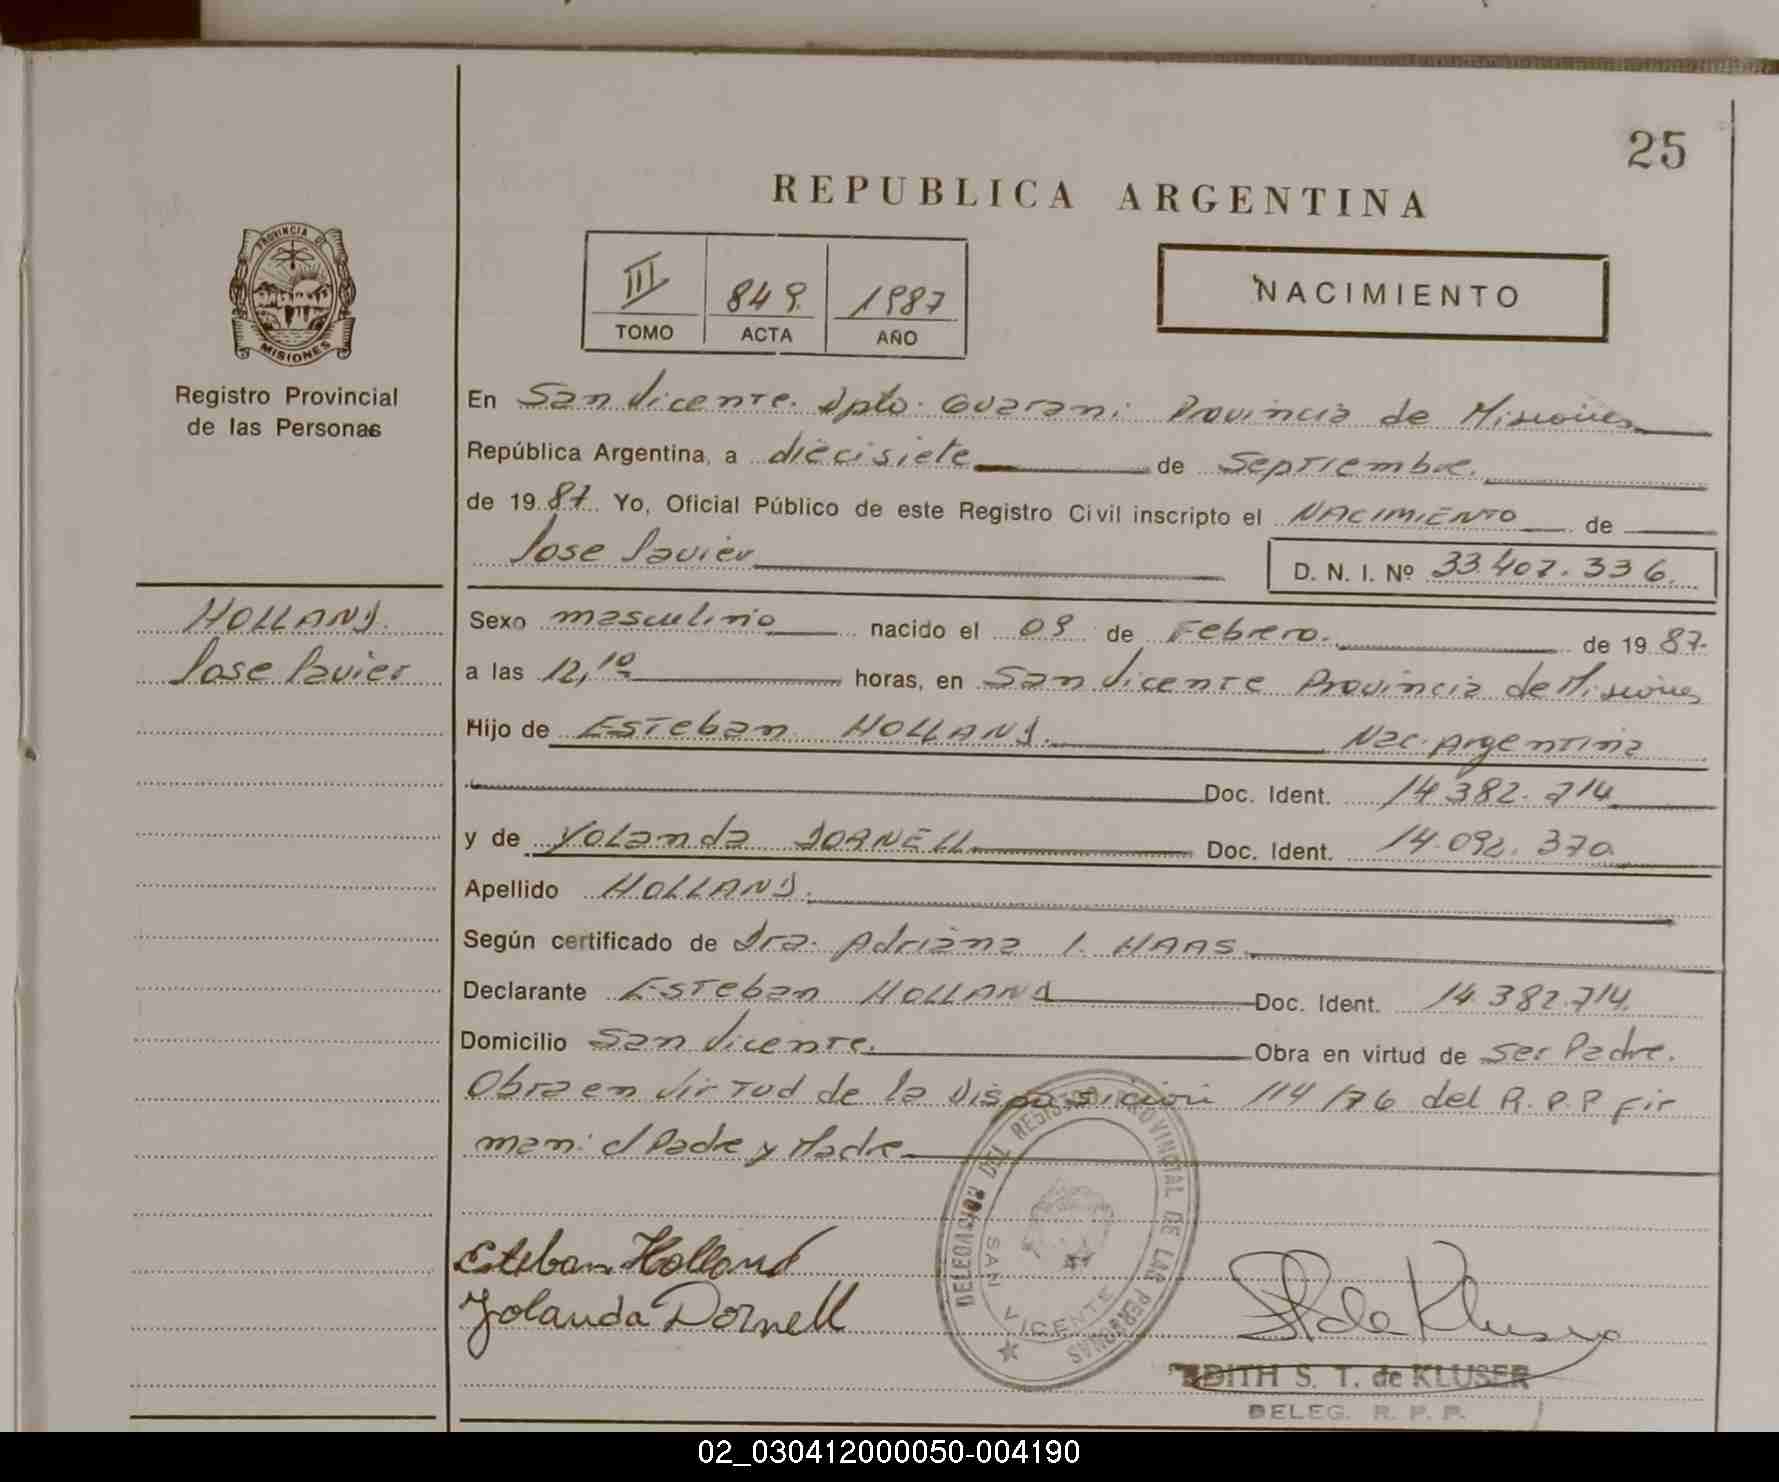 25
REPUBLICA ARGENTINA
III 849. 1987
TOMO ACTA AÑO
NACIMIENTO
PROVINCIA DE
MISIONES
Registro Provincial
de las Personas
En San Vicente. Dpto. Guarani Provincia de Misiones
República Argentina, a diecisiete de Septiembre.
de 19 87. Yo, Oficial Público de este Registro Civil inscripto el NACIMIENTO de
Jose Javier D. N. I. Nº 33.407.336.
HOLLAND.
Jose Javier
Sexo masculino nacido el 09 de Febrero. de 19 87.
a las 12,10 horas, en San Vicente Provincia de Misiones
Hijo de Esteban HOLLAND. Nac. Argentina
Doc. Ident. 14.382.714
y de Yolanda DORNELL Doc. Ident. 14.092.370
Apellido HOLLAND.
Según certificado de Dra. Adriana I. HAAS.
Declarante Esteban HOLLAND Doc. Ident. 14.382.714.
Domicilio San Vicente. Obra en virtud de ser Padre.
Obra en virtud de la Disposicion 114/76 del R.P.P fir
man: el Padre y Madre
DELEGACION DEL REGISTRO PROVINCIAL DE LAS PERSONAS
SAN VICENTE
Esteban Holland
Yolanda Dornell
de Kluser
EDITH S. T. de KLUSER
DELEG. R. P. P.
02_030412000050-004190